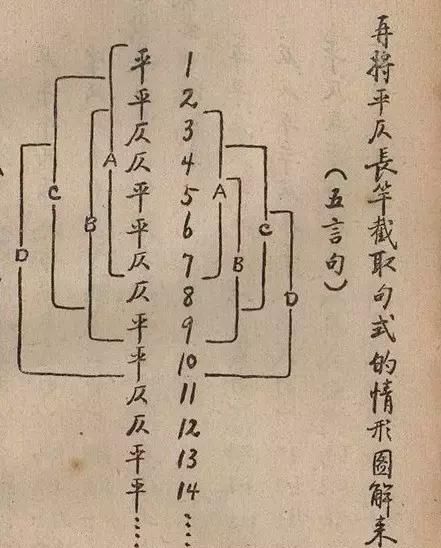 再將平仄長竿截取句式的情形圖解来
（五言句）
平 1
平 2
仄 3
A 仄 4
C 平 5 A
B 平 6 C
D 仄 7 B
仄 8 D
平 9
平 10
仄 11
仄 12
平 13
平 14
⋮ ⋮